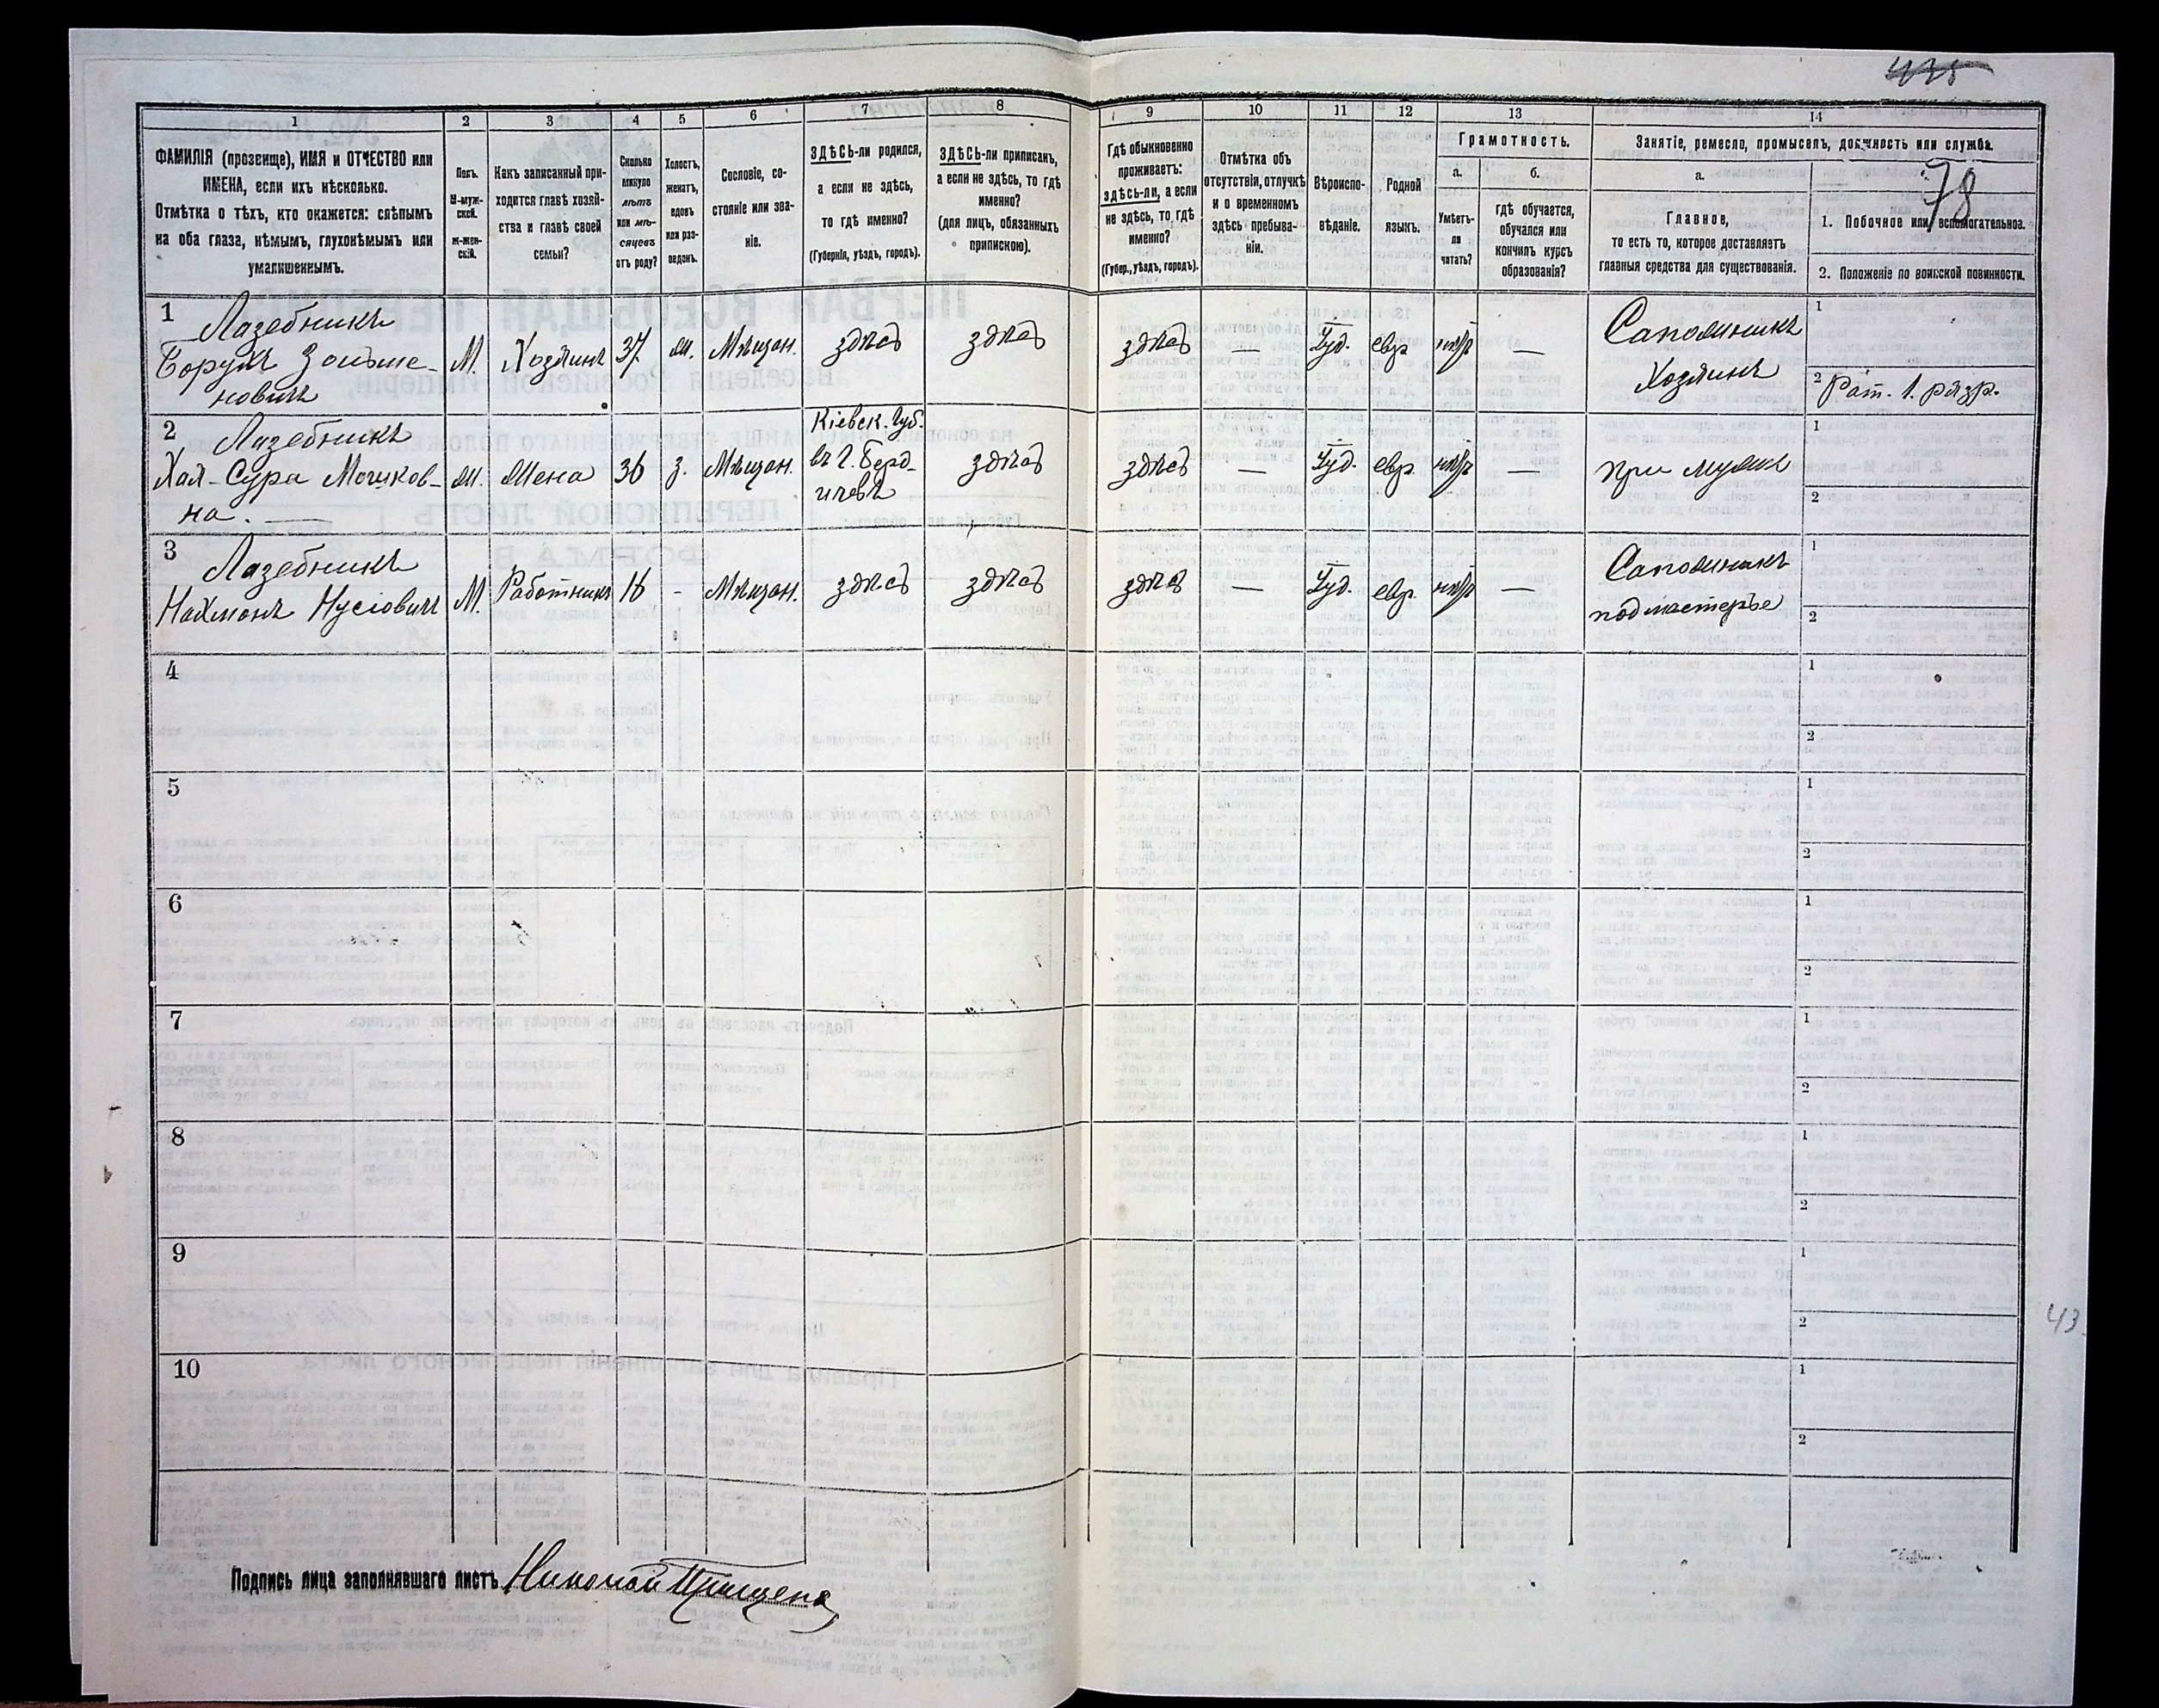 435
78
1
2
3
4
5
6
7
8
9
10
11
12
13
14
ФАМИЛІЯ (прозвище), ИМЯ и ОТЧЕСТВО или
ИМЕНА, если ихъ нѣсколько.
Отмѣтка о тѣхъ, кто окажется: слѣпымъ
на оба глаза, нѣмымъ, глухонѣмымъ или
умалишеннымъ.
Полъ.
М-муж-
ской.
Ж-жен-
скій.
Какъ записанный при-
ходится главѣ хозяй-
ства и главѣ своей
семьи?
Сколько
минуло
лѣтъ
или мѣ-
сяцевъ
отъ роду?
Холостъ,
женатъ,
вдовъ
или раз-
веденъ.
Сословіе, со-
стояніе или зва-
ніе.
ЗДѢСЬ-ли родился,
а если не здѣсь,
то гдѣ именно?
(Губернія, уѣздъ, городъ).
ЗДѢСЬ-ли приписанъ,
а если не здѣсь, то гдѣ
именно?
(для лицъ, обязанныхъ
припискою).
Гдѣ обыкновенно
проживаетъ:
здѣсь-ли, а если
не здѣсь, то гдѣ
именно?
(Губер., уѣздъ, городъ).
Отмѣтка объ
отсутствіи, отлучкѣ
и о временномъ
здѣсь пребыва-
ніи.
Вѣроиспо-
вѣданіе.
Родной
языкъ.
Грамотность.
а.
Умѣетъ-
ли
читать?
б.
гдѣ обучается,
обучался или
кончилъ курсъ
образованія?
Занятіе, ремесло, промыселъ, должность или служба.
а.
Главное,
то есть то, которое доставляетъ
главныя средства для существованія.
1. Побочное или вспомогательное.
2. Положеніе по воинской повинности.
1
Лазебникъ
Борухъ
новичъ
М.
Хозяинъ
37
ж.
Мѣщан.
здѣсь
здѣсь
здѣсь
—
Іуд.
евр.
нѣтъ
—
Сапожникъ
Хозяинъ
1
2 Рат. 1. разр.
2
Лазебникъ
Хая-Сура Мошков-
на.
ж.
Жена
36
з.
Мѣщан.
Кіевск. Губ.
въ г. Берд-
ичевѣ
здѣсь
здѣсь
—
Іуд.
евр.
нѣтъ
—
при мужѣ
1
2
3
Лазебникъ
Нахманъ Нусіовичъ
М.
Работникъ
16
-
Мѣщан.
здѣсь
здѣсь
здѣсь
—
Іуд.
евр.
нѣтъ
—
Сапожникъ
подмастерье
1
2
4
1
2
5
1
2
6
1
2
7
1
2
8
1
2
9
1
2
43
10
1
2
Подпись лица заполнявшаго листъ Николай Прищепа